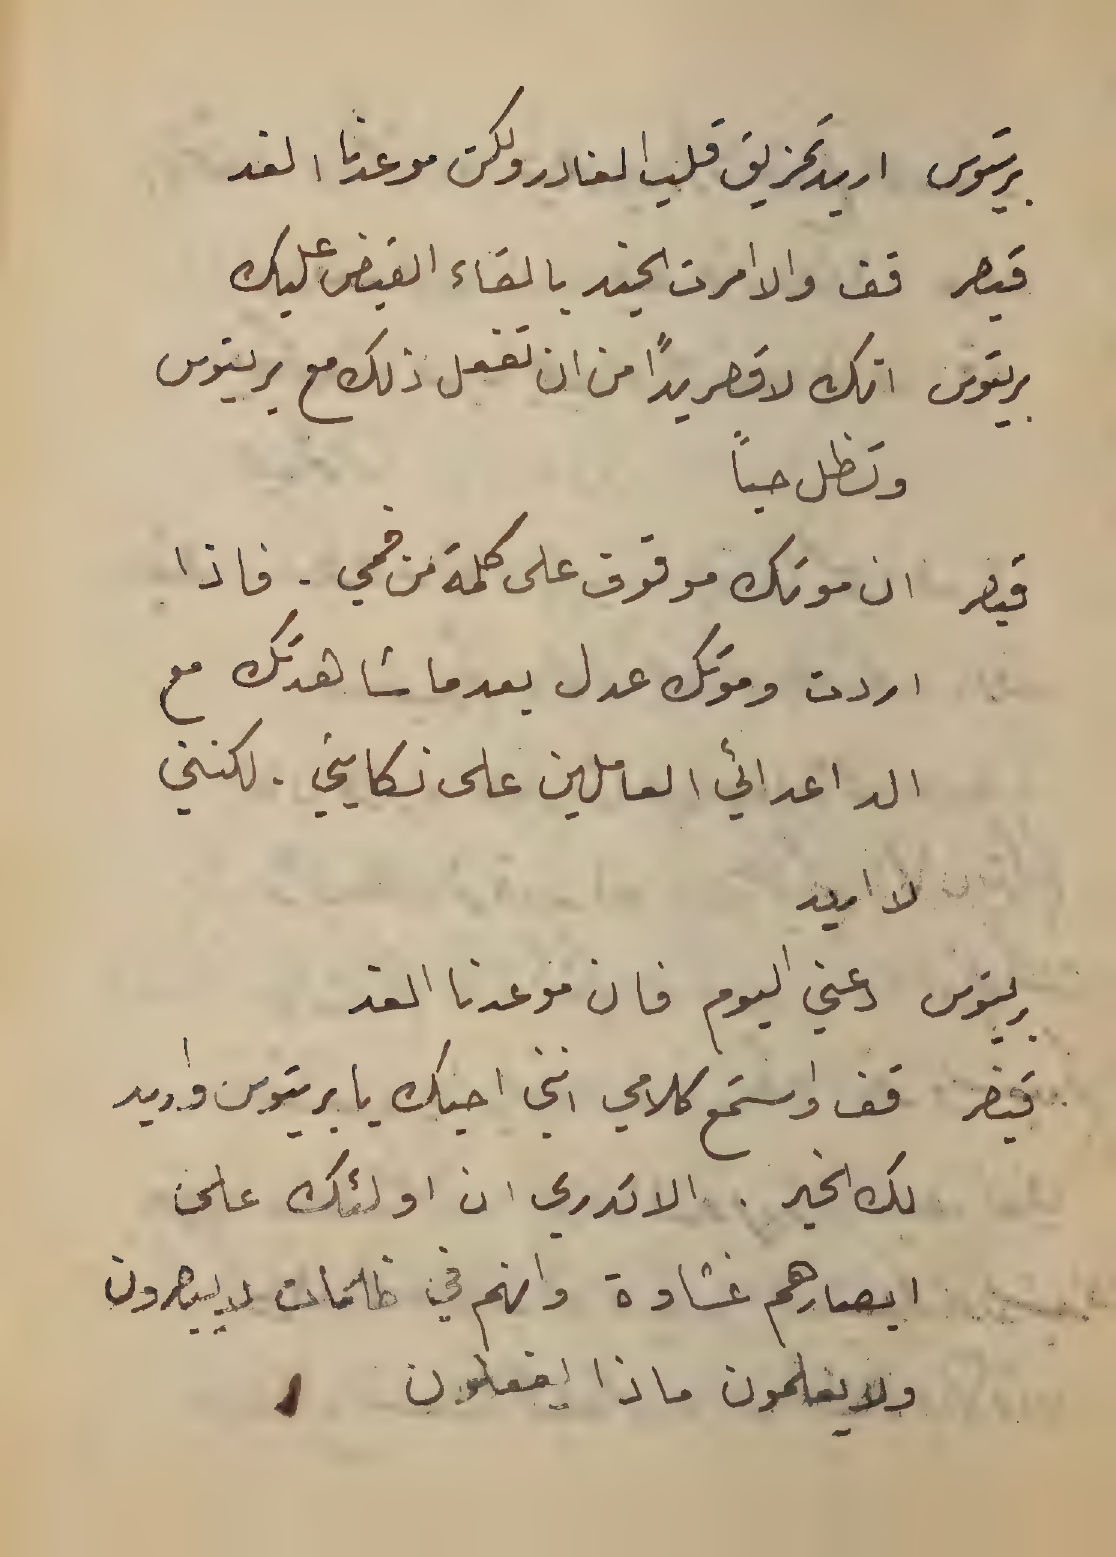 بريتوس اريد تمزيق قلب الغادر ولكن موعدنا الغد
قيصر قف والا امرت الجند بالقاء القبض عليك
بريتوس انك لاقصر يدًا من ان تفعل ذلك مع بريتوس
وتظل حياً
قيصر ان موتك موقوف على كلمة من فمي . فاذا
اردت وموتك عدل بعدما شاهدتك مع
الد اعدائي العاملين على نكايتي . لكنني
لا اريد
بريتوس دعني اليوم فان موعدنا الغد
قيصر قف واستمع كلامي انني احبك يا بريتوس واريد
لك الخير . الا تدري ان اولئك على
ابصارهم غشاوة وانهم في ظلمات لا يبصرون
ولا يعلمون ماذا يفعلون